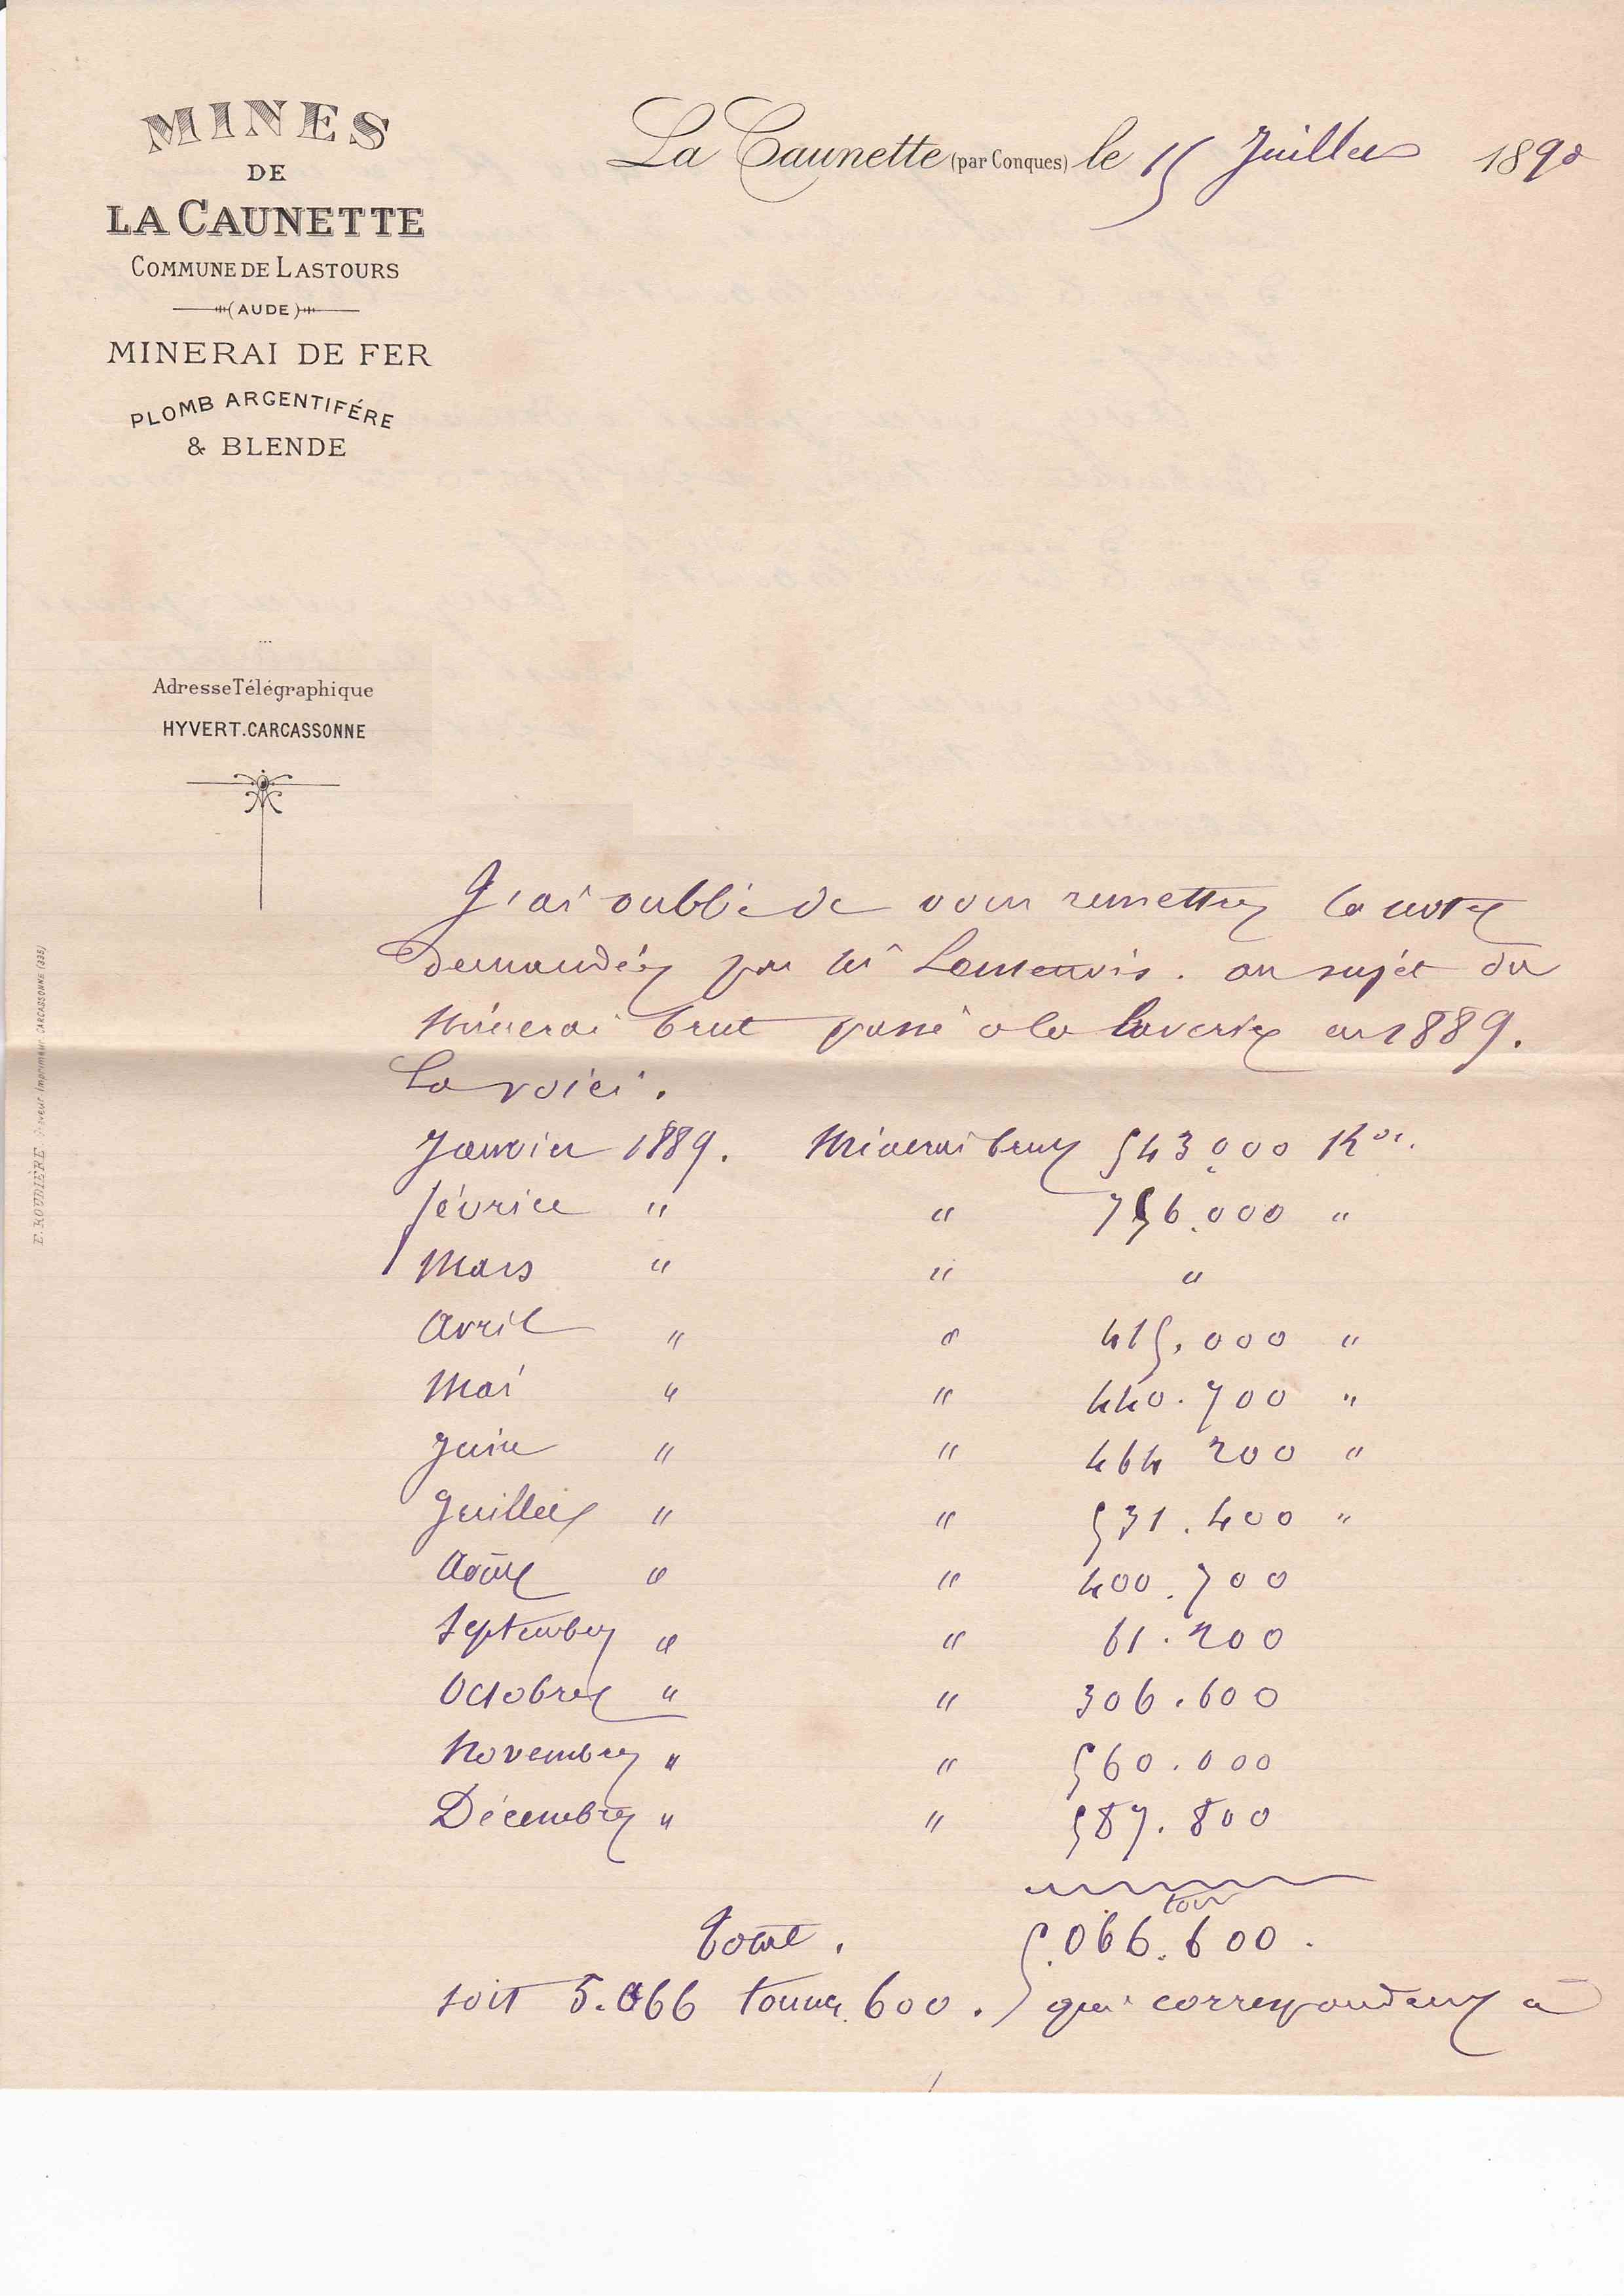 MINES
DE
LA CAUNETTE
COMMUNE DE LASTOURS
(AUDE)
MINERAI DE FER
PLOMB ARGENTIFÉRE
& BLENDE
La Caunette (par Conques) le 15 Juillet 1890
Adresse Télégraphique
HYVERT.CARCASSONNE
E. ROUDIÈRE Graveur Imprimeur CARCASSONNE
J'ai oublié de vous remettre la note
demandée par Mr au sujet du
Minerai brut passé à la laverie en 1889.
La voici.
Janvier 1889. Minerai brut 543.000 Kos.
février " " 756.000 "
Mars " " "
Avril " " 415.000 "
Mai " " 440.700 "
Juin " " 464 200 "
Juillet " " 531.400 "
Août " " 400.700
Septembre " " 61.200
Octobre " " 306.600
Novembre " " 560.000
Décembre " " 587.800
ton
Total. 5.066.600.
soit 5.066 tonnes 600. qui correspondent à